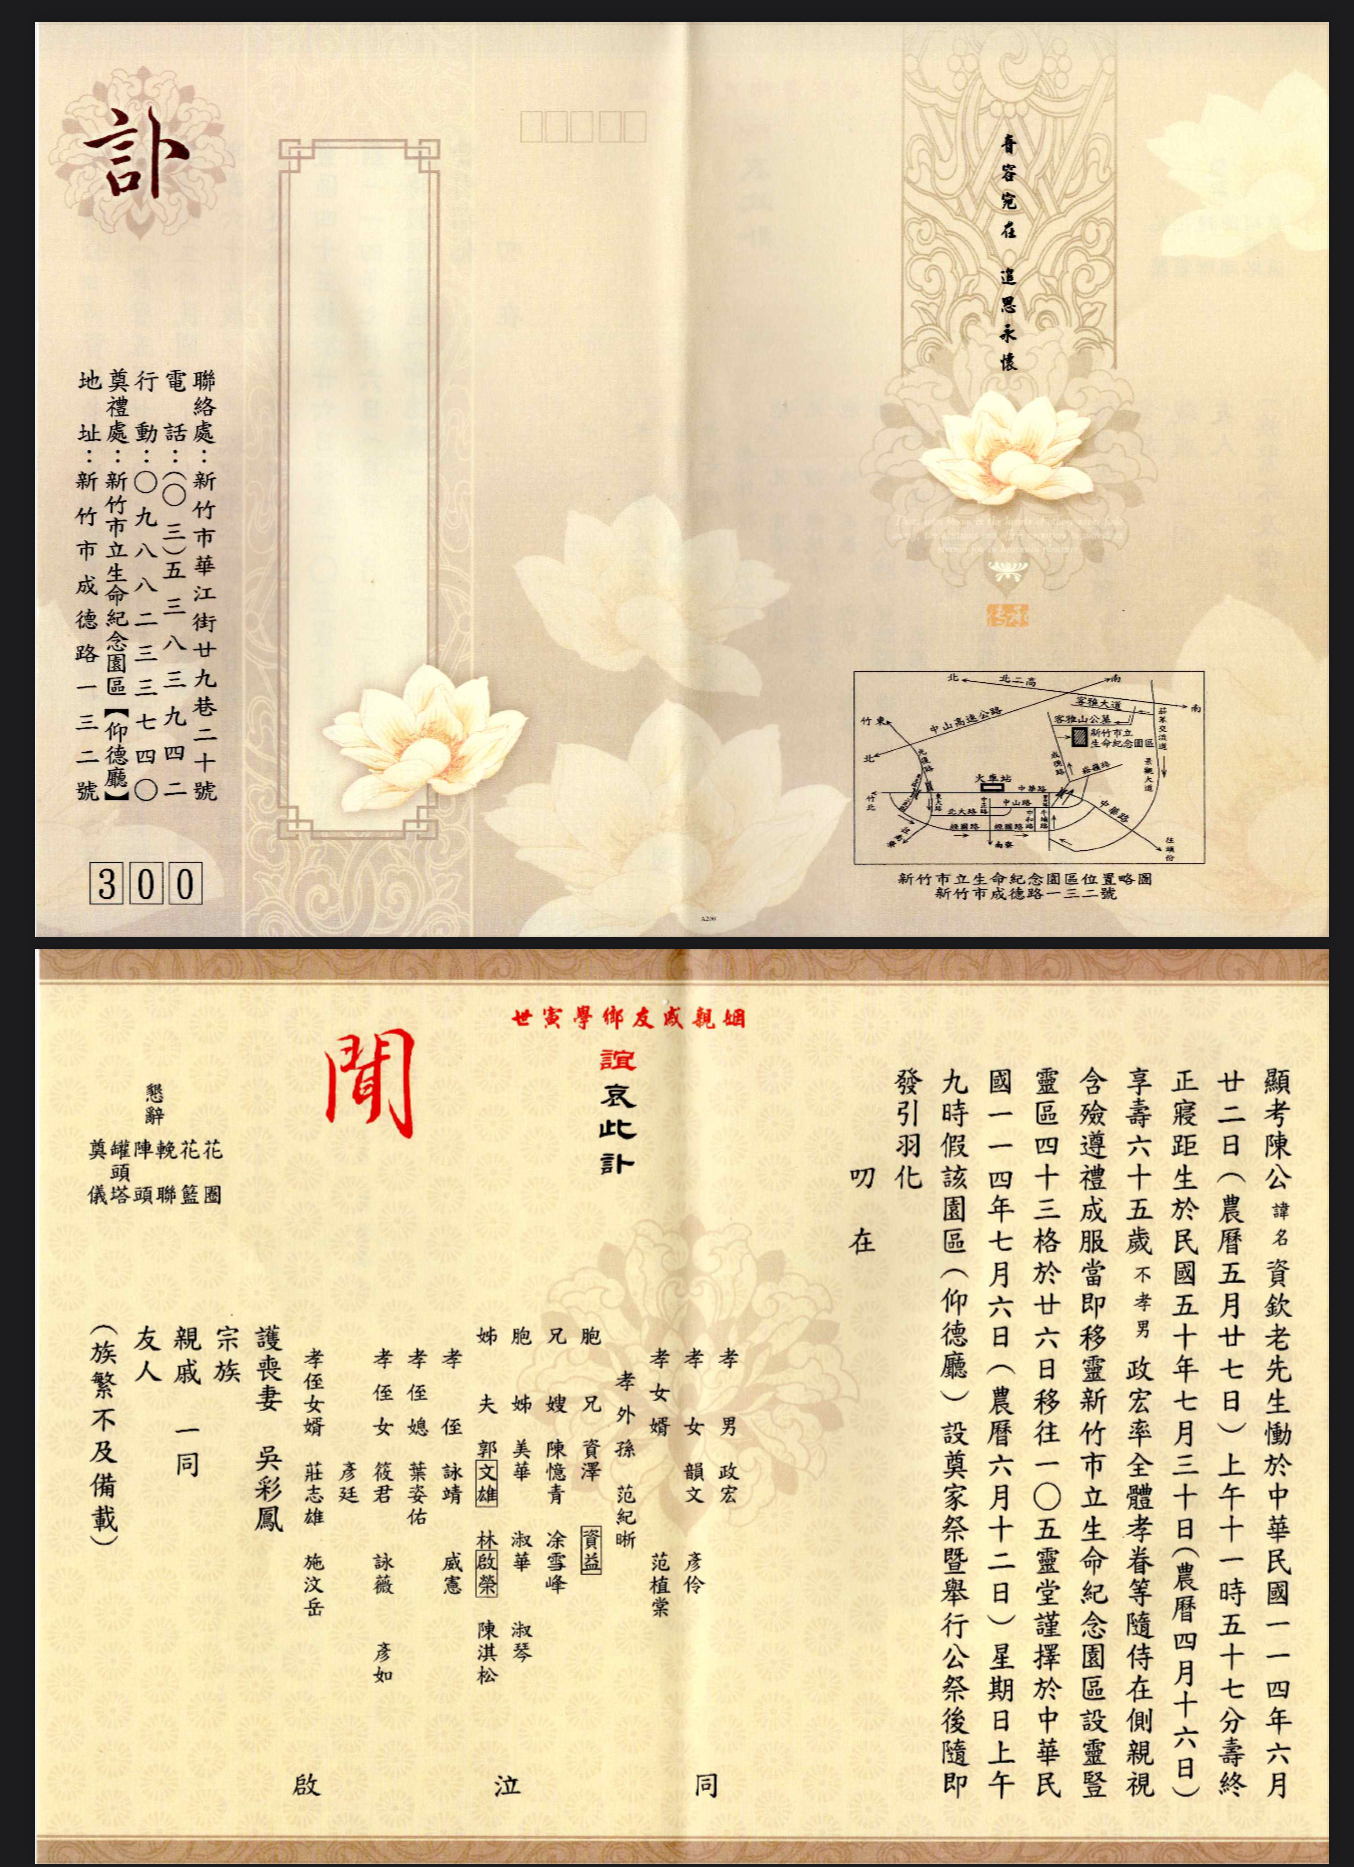 音容宛在 追思永懷
訃
聯絡處：新竹市華江街廿九巷二十號
電話：（〇三）五三八三九四二
行動：〇九八八二三三七四〇
奠禮處：新竹市立生命紀念園區【仰德廳】
地址：新竹市成德路一三二號
300
北
北二高
南
南
客雅大道
中山高速公路
竹東
客雅山公墓
新竹市立
生命紀念園區
茄苳交流道
景觀大道
北
光復路
成德路
火車站
中華路
竹北
中山路
北大路
東大路
經國路
經國路
中華路
南寮
往頭份
新竹市立生命紀念園區位置略圖
新竹市成德路一三二號
A206
顯考陳公諱名資欽老先生慟於中華民國一一四年六月
廿二日（農曆五月廿七日）上午十一時五十七分壽終
正寢距生於民國五十年七月三十日（農曆四月十六日）
享壽六十五歲不孝男政宏率全體孝眷等隨侍在側親視
含殮遵禮成服當即移靈新竹市立生命紀念園區設靈暨
靈區四十三格於廿六日移往一〇五靈堂謹擇於中華民
國一一四年七月六日（農曆六月十二日）星期日上午
九時假該園區（仰德廳）設奠家祭暨舉行公祭後隨即
發引羽化
叨在
姻親戚友鄉學寅世
誼哀此訃
聞
孝男 政宏
孝女 韻文 彥伶
孝女婿 范植棠
孝外孫 范紀晰
胞兄 資澤 資益
兄嫂 陳憶青 凃雪峰
胞姊 美華 淑華 淑琴
姊夫 郭文雄 林啟榮 陳淇松
孝侄 詠靖 威憲
孝侄媳 葉姿佑
孝侄女 筱君 詠薇 彥如
彥廷
孝侄女婿 莊志雄 施汶岳
護喪妻 吳彩鳳
宗族
親戚 一同
友人
（族繁不及備載）
同泣啟
懇辭
花圈
花籃
輓聯
陣頭
罐頭塔
奠儀